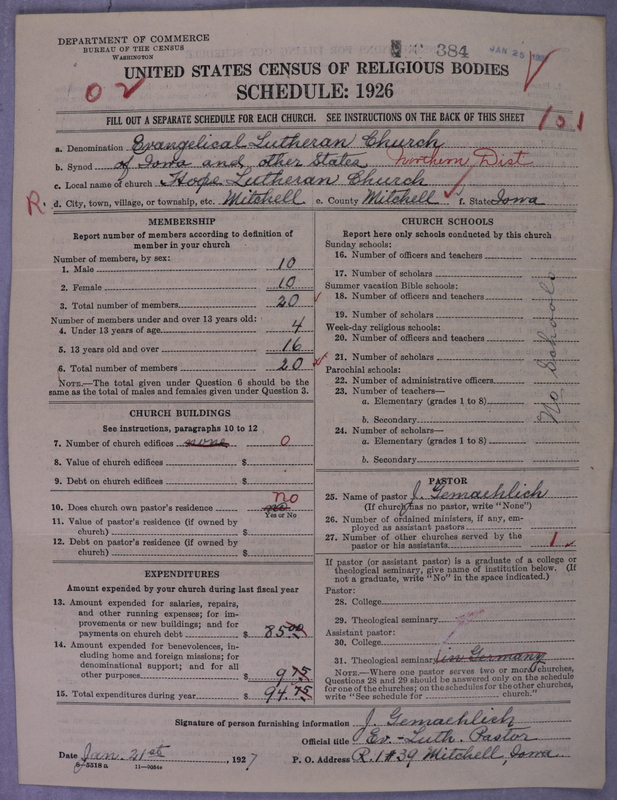 DEPARTMENT OF COMMERCE
BUREAU OF THE CENSUS
WASHINGTON
384
JAN 25
UNITED STATES CENSUS OF RELIGIOUS BODIES
SCHEDULE: 1926
FILL OUT A SEPARATE SCHEDULE FOR EACH CHURCH. SEE INSTRUCTIONS ON THE BACK OF THIS SHEET
101
a. Denomination Evangelical Lutheran Church
b. Synod of Iowa and other States Northern Dist
c. Local name of church Hope Lutheran Church
R. d. City, town, village, or township, etc. Mitchell e. County Mitchell f. State Iowa
MEMBERSHIP
Report number of members according to definition of
member in your church
Number of members, by sex:
1. Male 10
2. Female 10
3. Total number of members 20
Number of members under and over 13 years old:
4. Under 13 years of age 4
5. 13 years old and over 16
6. Total number of members 20
NOTE.—The total given under Question 6 should be the
same as the total of males and females given under Question 3.
CHURCH BUILDINGS
See instructions, paragraphs 10 to 12
7. Number of church edifices none 0
8. Value of church edifices $
9. Debt on church edifices $
10. Does church own pastor's residence no no
Yes or No
11. Value of pastor's residence (if owned by
church) $
12. Debt on pastor's residence (if owned by
church) $
EXPENDITURES
Amount expended by your church during last fiscal year
13. Amount expended for salaries, repairs,
and other running expenses; for im-
provements or new buildings; and for
payments on church debt $ 85.00
14. Amount expended for benevolences, in-
cluding home and foreign missions; for
denominational support; and for all
other purposes $ 9.75
15. Total expenditures during year $ 94.75
CHURCH SCHOOLS
Report here only schools conducted by this church
Sunday schools:
16. Number of officers and teachers
17. Number of scholars
Summer vacation Bible schools:
18. Number of officers and teachers
19. Number of scholars
Week-day religious schools:
20. Number of officers and teachers
21. Number of scholars
Parochial schools:
22. Number of administrative officers
23. Number of teachers—
a. Elementary (grades 1 to 8)
b. Secondary
24. Number of scholars—
a. Elementary (grades 1 to 8)
b. Secondary
No Schools
PASTOR
25. Name of pastor J. Gemaehlich
(If church has no pastor, write "None")
26. Number of ordained ministers, if any, em-
ployed as assistant pastors
27. Number of other churches served by the
pastor or his assistants 1
If pastor (or assistant pastor) is a graduate of a college or
theological seminary, give name of institution below. (If
not a graduate, write "No" in the space indicated.)
Pastor:
28. College
29. Theological seminary
Assistant pastor:
30. College
31. Theological seminary (in Germany
NOTE.—Where one pastor serves two or more churches,
Questions 28 and 29 should be answered only on the schedule
for one of the churches; on the schedules for the other churches,
write "See schedule for church."
Signature of person furnishing information J. Gemaehlich
Official title Ev.-Luth. Pastor
Date Jan. 21st, 1927 P. O. Address R. 1 # 39 Mitchell, Iowa
8-5518a 11-9084